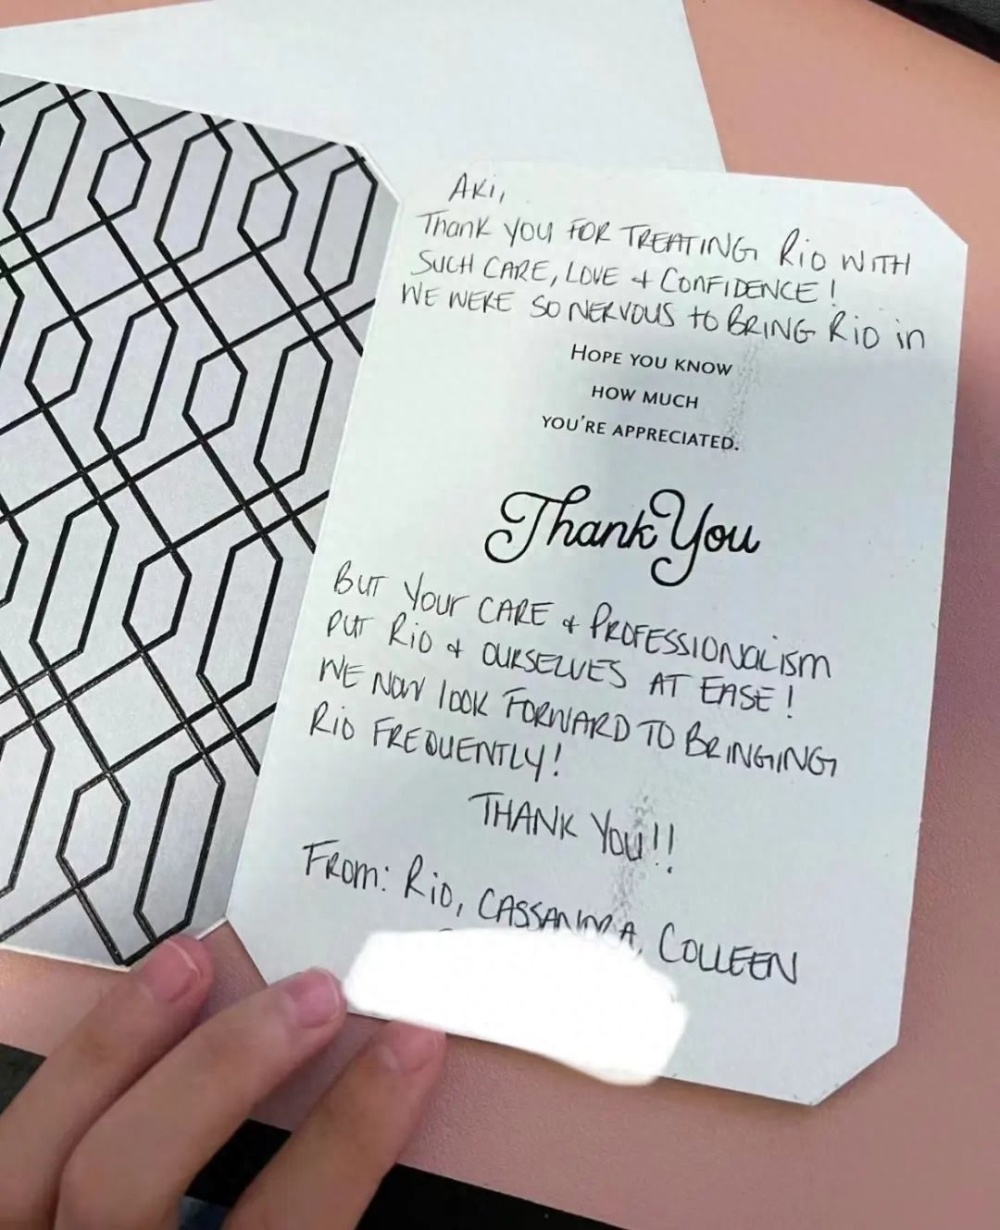 Aki,
Thank you FOR TREATING Rio WITH
SUCH CARE, LOVE + CONFIDENCE!
WE WERE SO NERVOUS to BRING Rio in
HOPE YOU KNOW
HOW MUCH
YOU'RE APPRECIATED.
Thank You
BUT Your CARE + PROFESSIONALISM
PUT Rio + OURSELVES AT EASE!
WE NOW LOOK FORWARD TO BRINGING
Rio FREQUENTLY!
THANK YOU!!
From: Rio, CASSANDRA, COLLEEN